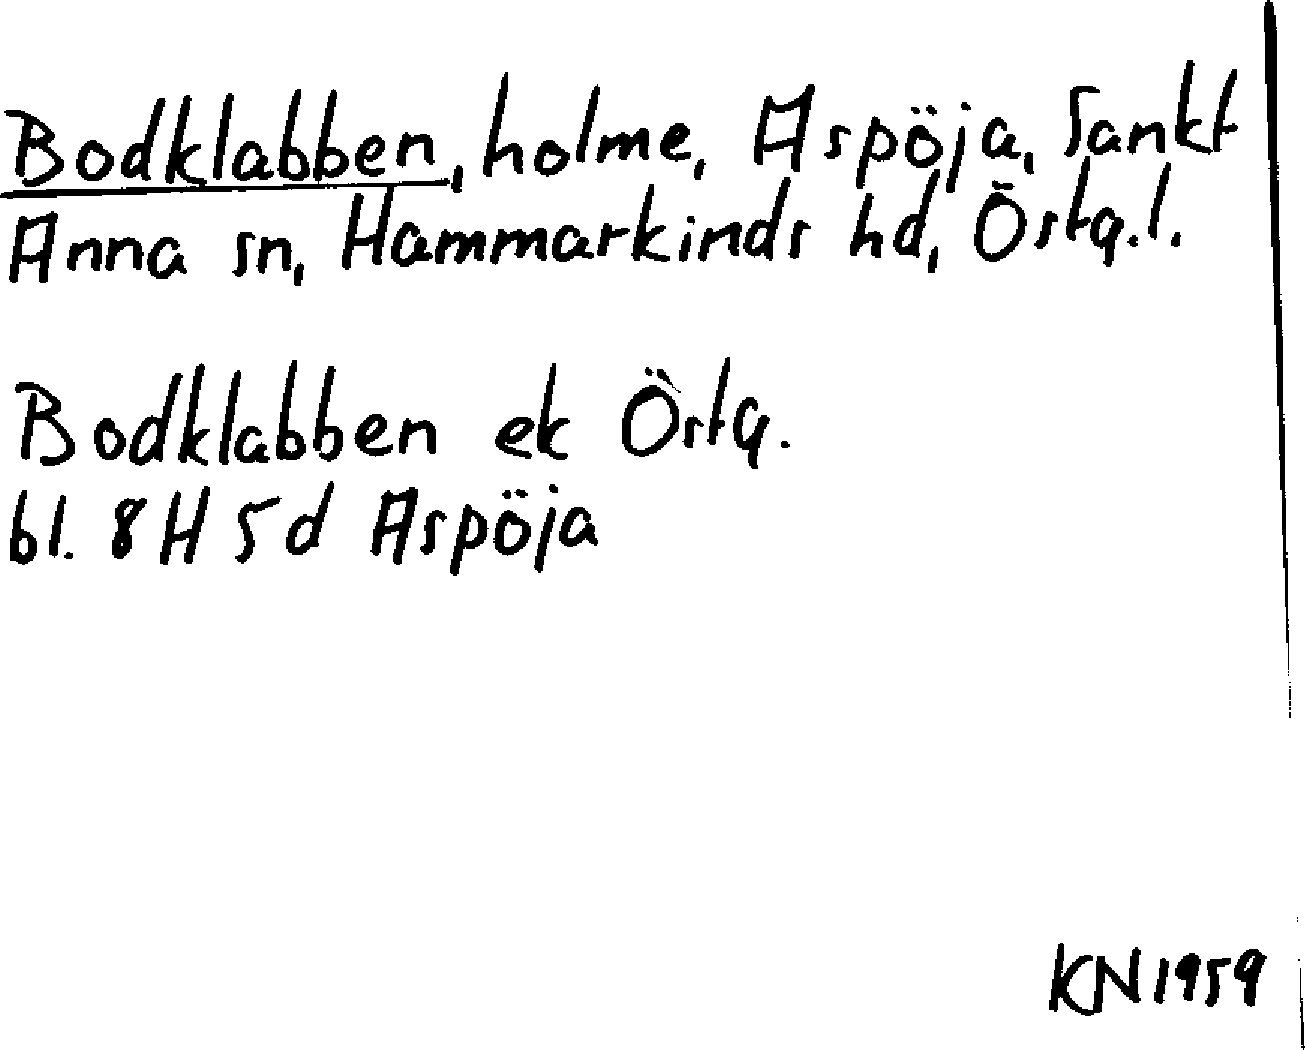 Bodklabben, holme, Aspöja, Sankt
Anna sn, Hammarkinds hd, Östg.l.
Bodklabben ek Östg.
bl. 8H 5d Aspöja
KN1959